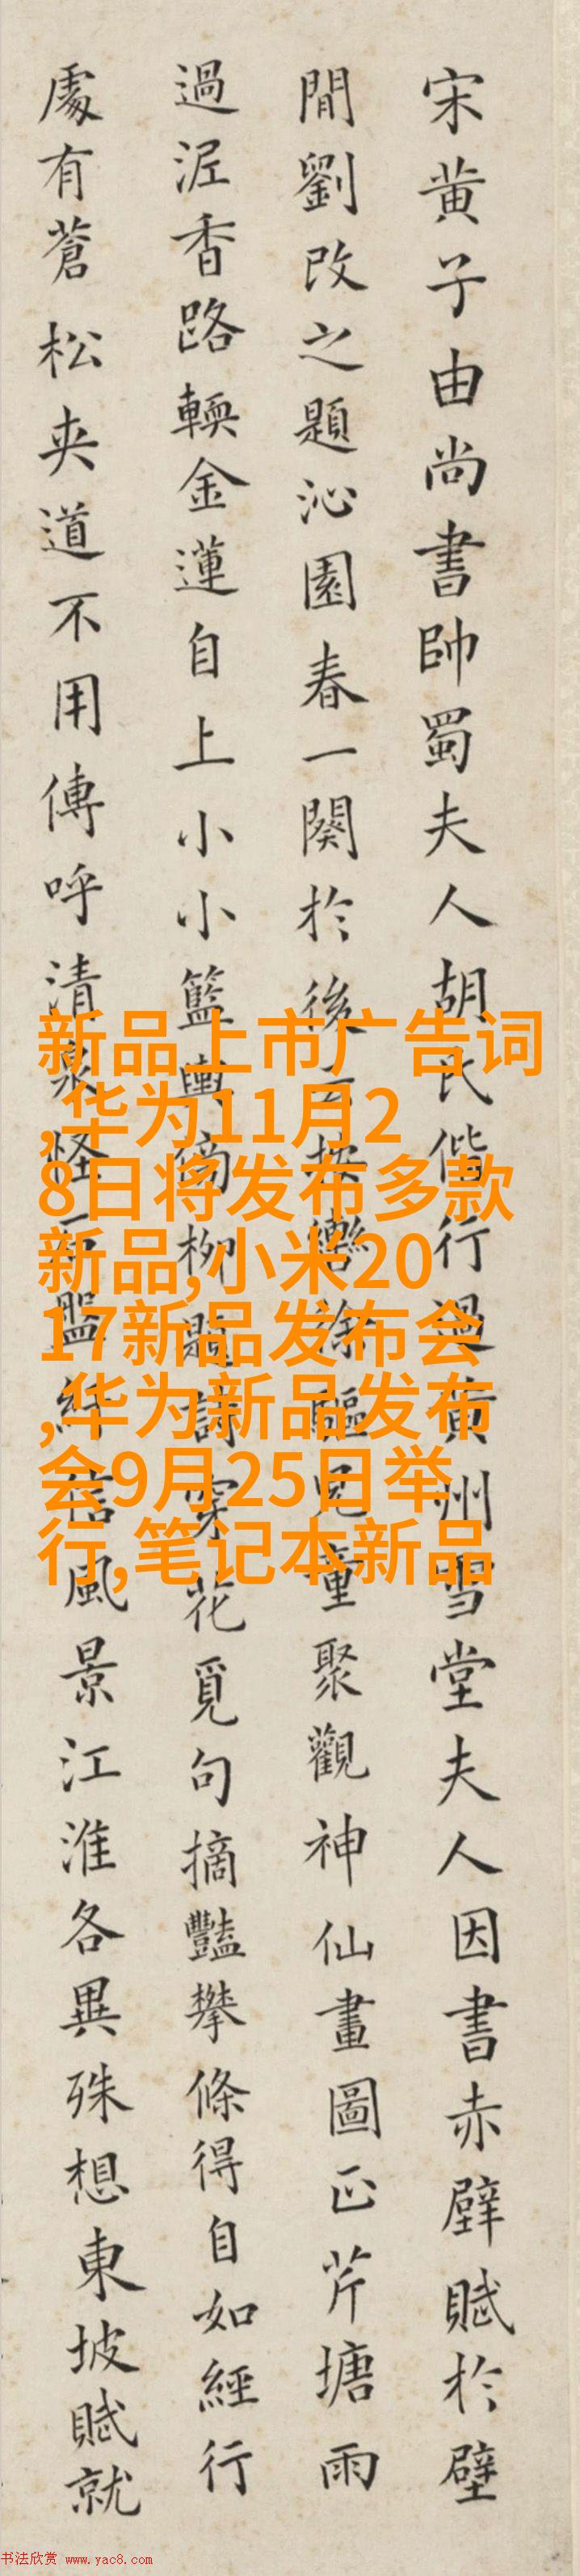 宋黄子由尚書帥蜀夫人胡氏偕行過黄州雪堂夫人因書赤壁賦於壁
閒劉改之題沁園春一闋於後云按轡徐驅兒童聚觀神仙畫圖正芹塘雨
過泥香路輭金蓮自上小小籃輿傍柳題詩穿花覓句摘豔攀條得自如經行
處有蒼松夾道不用傳呼清泉怪石盤紆信風景江淮各異殊想東坡賦就
新品上市广告词
,华为11月2
8日将发布多款
新品,小米20
17新品发布会
,华为新品发布
会9月25日举
行,笔记本新品
书法欣赏 www.yac8.com